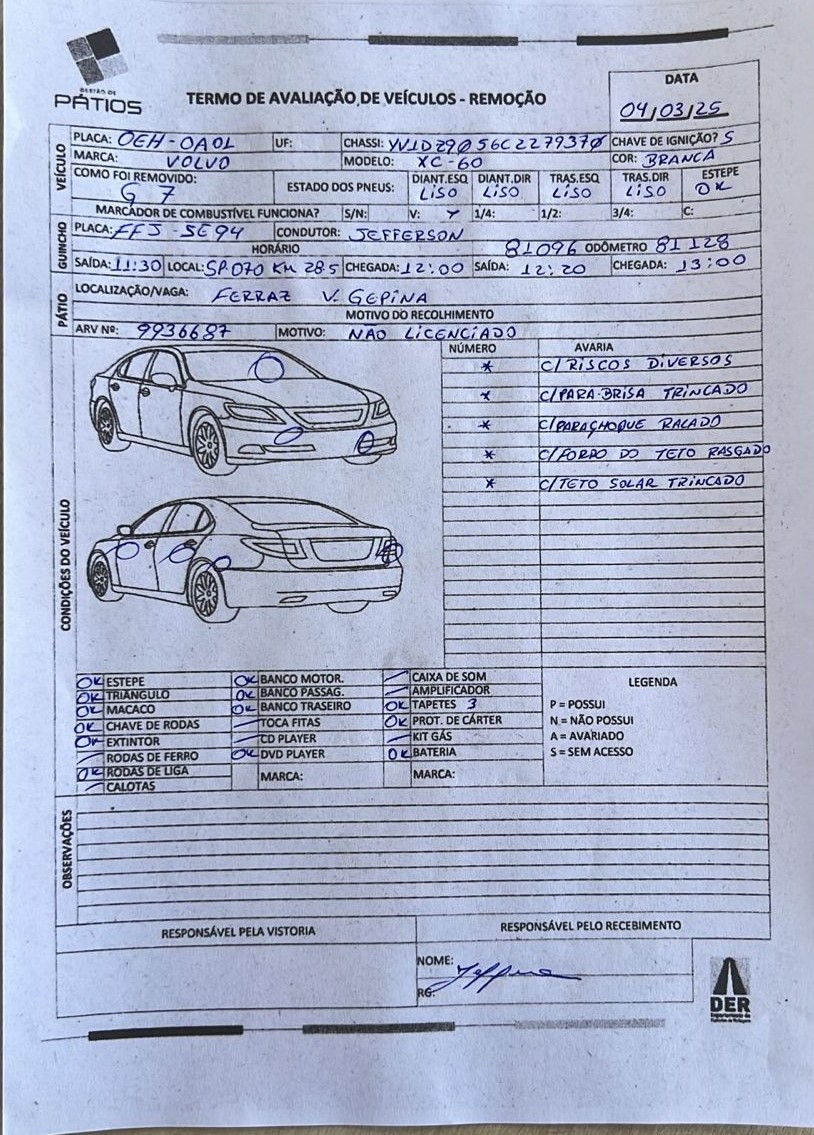 GESTÃO DE
PÁTIOS
TERMO DE AVALIAÇÃO DE VEÍCULOS - REMOÇÃO
DATA
04/03/25
VEÍCULO
PLACA: OEH-0A0L UF: CHASSI: YV1DZ9056C2279370 CHAVE DE IGNIÇÃO? S
MARCA: VOLVO MODELO: XC-60 COR: BRANCA
COMO FOI REMOVIDO: G 7 ESTADO DOS PNEUS: DIANT.ESQ LISO DIANT.DIR LISO TRAS.ESQ LISO TRAS.DIR LISO ESTEPE OK
MARCADOR DE COMBUSTÍVEL FUNCIONA? S/N: V: 1/4: 1/2: 3/4: C:
GUINCHO
PLACA: FFJ-5E94 CONDUTOR: JEFFERSON
HORÁRIO 81096 ODÔMETRO 81128
SAÍDA: 11:30 LOCAL: SP.070 KM 285 CHEGADA: 12:00 SAÍDA: 12:20 CHEGADA: 13:00
PÁTIO
LOCALIZAÇÃO/VAGA: FERRAZ V. GEPINA
MOTIVO DO RECOLHIMENTO
ARV Nº: 9936687 MOTIVO: NÃO LICENCIADO
CONDIÇÕES DO VEÍCULO
NÚMERO AVARIA
* C/RISCOS DIVERSOS
* C/PARA-BRISA TRINCADO
* C/PARACHOQUE RALADO
* C/FORRO DO TETO RASGADO
* C/TETO SOLAR TRINCADO
OK ESTEPE OK BANCO MOTOR. CAIXA DE SOM
OK TRIÂNGULO OK BANCO PASSAG. AMPLIFICADOR
OK MACACO OK BANCO TRASEIRO OK TAPETES 3
OK CHAVE DE RODAS TOCA FITAS OK PROT. DE CÁRTER
OK EXTINTOR CD PLAYER KIT GÁS
RODAS DE FERRO OK DVD PLAYER OK BATERIA
OK RODAS DE LIGA MARCA: MARCA:
CALOTAS
LEGENDA
P = POSSUI
N = NÃO POSSUI
A = AVARIADO
S = SEM ACESSO
OBSERVAÇÕES
RESPONSÁVEL PELA VISTORIA RESPONSÁVEL PELO RECEBIMENTO
NOME:
RG:
DER